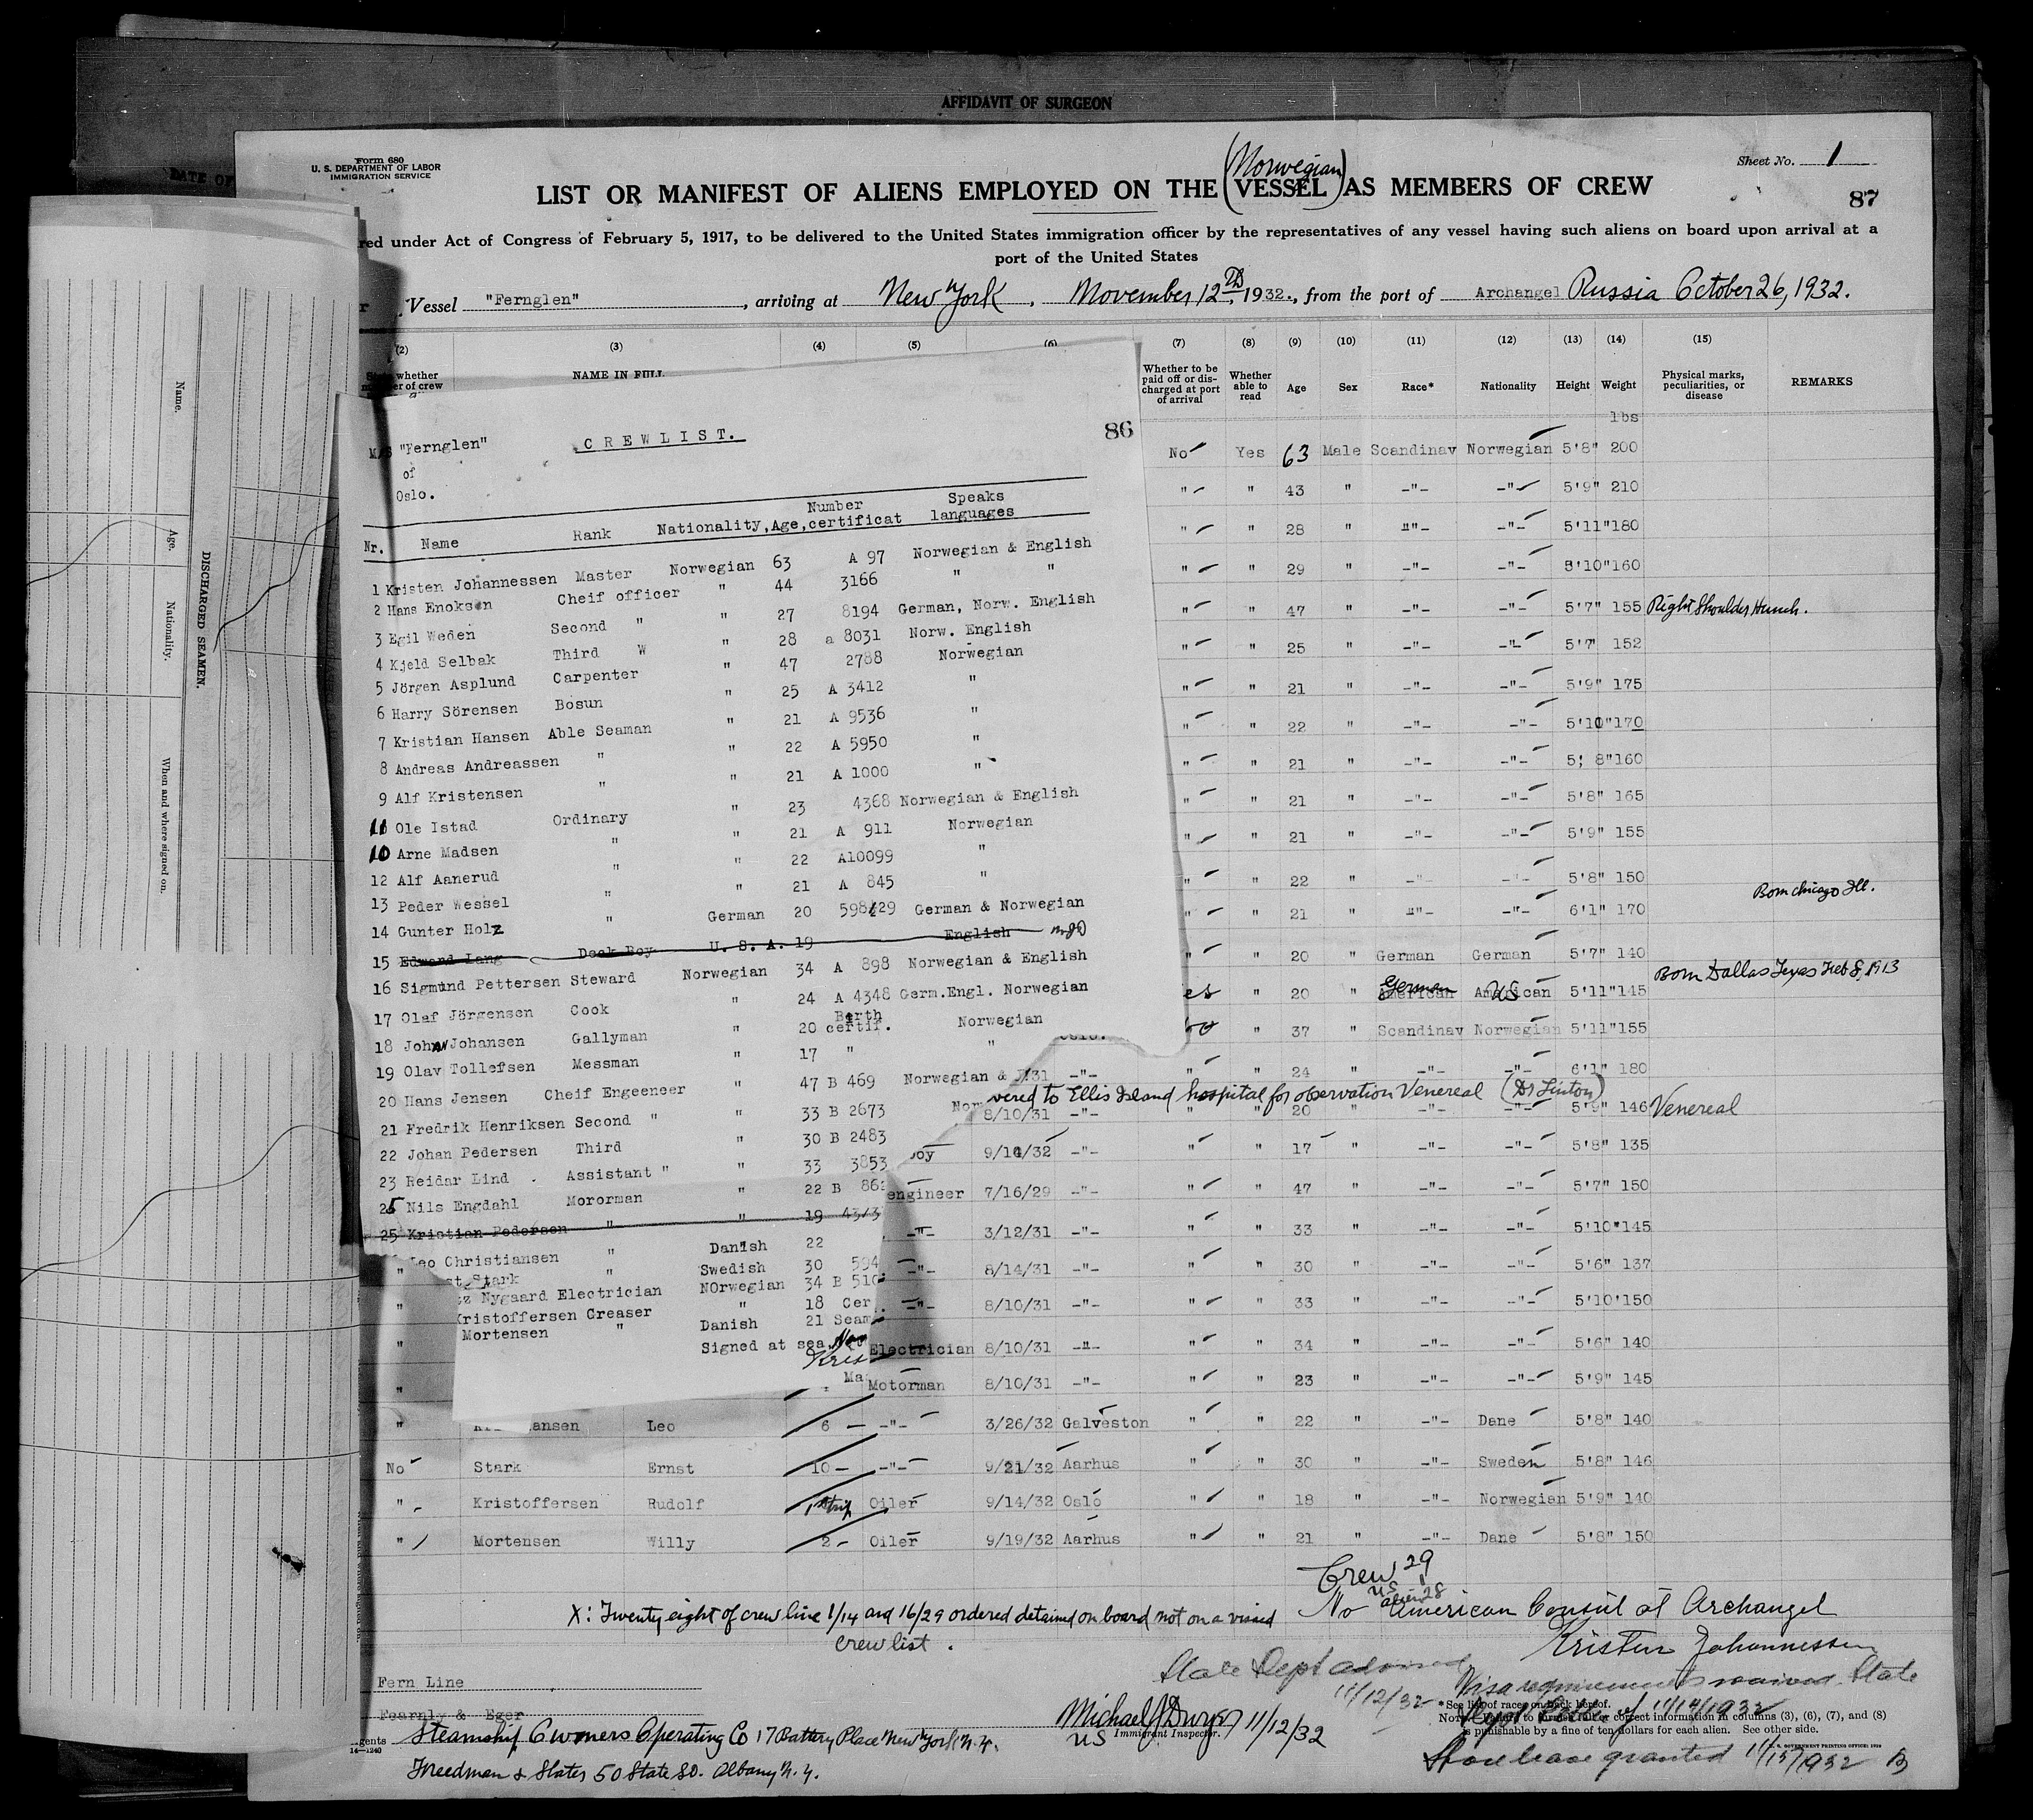 AFFIDAVIT OF SURGEON
DATE OF
Form 680
U. S. DEPARTMENT OF LABOR
IMMIGRATION SERVICE
Sheet No. 1
87
(Norwegian)
LIST OR MANIFEST OF ALIENS EMPLOYED ON THE VESSEL AS MEMBERS OF CREW
red under Act of Congress of February 5, 1917, to be delivered to the United States immigration officer by the representatives of any vessel having such aliens on board upon arrival at a
port of the United States
Vessel "Fernglen", arriving at New York, November 12th, 1932., from the port of Archangel Russia October 26, 1932.
(2) (3) (4) (5) (6) (7) (8) (9) (10) (11) (12) (13) (14) (15)
whether
er of crew
NAME IN FULL
Whether to be paid off or discharged at port of arrival
Whether able to read
Age
Sex
Race*
Nationality
Height
Weight
Physical marks, peculiarities, or disease
REMARKS
lbs
Name.
Age.
Nationality.
When and where signed on.
DISCHARGED SEAMEN.
86
M/S "Fernglen"
of
Oslo.
CREWLIST.
Nr. Name Rank Nationality, Age, Number certificat Speaks languages
1 Kristen Johannessen Master Norwegian 63 A 97 Norwegian & English
2 Hans Enoksen Cheif officer " 44 3166 " "
3 Egil Weden Second " " 27 8194 German, Norw. English
4 Kjeld Selbak Third W " 28 a 8031 Norw. English
5 Jörgen Asplund Carpenter " 47 2788 Norwegian
6 Harry Sörensen Bosun " 25 A 3412 "
7 Kristian Hansen Able Seaman " 21 A 9536 "
8 Andreas Andreassen " " 22 A 5950 "
9 Alf Kristensen " " 21 A 1000 "
11 Ole Istad Ordinary " 23 4368 Norwegian & English
10 Arne Madsen " " 21 A 911 Norwegian
12 Alf Aanerud " " 22 A10099 "
13 Peder Wessel " " 21 A 845 "
14 Gunter Holz " German 20 598/29 German & Norwegian
15 Edward Lang Deck Boy U. S. A. 19 English
16 Sigmund Pettersen Steward Norwegian 34 A 898 Norwegian & English
17 Olaf Jörgensen Cook " 24 A 4348 Germ.Engl. Norwegian
18 John Johansen Gallyman " 20 Birth certif. Norwegian
19 Olav Tollefsen Messman " 17 " "
20 Hans Jensen Cheif Engeeneer " 47 B 469 Norwegian &
21 Fredrik Henriksen Second " " 33 B 2673 Nor
22 Johan Pedersen Third " 30 B 2483
23 Reidar Lind Assistant " " 33 3853
25 Nils Engdahl Mororman " 22 B 86
25 Kristian Pedersen " " 19 4313
Leo Christiansen " Danish 22
st Stark " Swedish 30 594
tz Nygaard Electrician NOrwegian 34 B 510
Kristoffersen Greaser " 18 Cer
Mortensen " Danish 21 Seam
Signed at sea, Nov
Kris
Ma
No Yes 63 Male Scandinav Norwegian 5'8" 200
" " 43 " -"- -"- 5'9" 210
" " 28 " -"- -"- 5'11" 180
" " 29 " -"- -"- 5'10" 160
" " 47 " -"- -"- 5'7" 155 Right Shoulder Hunch.
" " 25 " -"- -"- 5'7 152
" " 21 " -"- -"- 5'9" 175
" " 22 " -"- -"- 5'10" 170
" " 21 " -"- -"- 5; 8" 160
" " 21 " -"- -"- 5'8" 165
" " 21 " -"- -"- 5'9" 155
" " 22 " -"- -"- 5'8" 150
" " 21 " -"- -"- 6'1" 170 Born Chicago Ill.
" " 20 " German German 5'7" 140
es " 20 " American German American US 5'11" 145 Born Dallas Texas Feb 8, 1913
No " 37 " Scandinav Norwegian 5'11" 155
31 -"- " " 24 " -"- -"- 6'1" 180
vered to Ellis Island hospital for observation Venereal (Dr Linton)
8/10/31 -"- " " 20 " -"- -"- 5'9" 146 Venereal
boy 9/14/32 -"- " " 17 " -"- -"- 5'8" 135
engineer 7/16/29 -"- " " 47 " -"- -"- 5'7" 150
-"- 3/12/31 -"- " " 33 " -"- -"- 5'10" 145
" -"- 8/14/31 -"- " " 30 " -"- -"- 5'6" 137
" -"- 8/10/31 -"- " " 33 " -"- -"- 5'10' 150
" Electrician 8/10/31 -"- " " 34 " -"- -"- 5'6" 140
" Motorman 8/10/31 -"- " " 23 " -"- -"- 5'9" 145
" ansen Leo 6 -"- 3/26/32 Galveston " " 22 " -"- Dane 5'8" 140
No Stark Ernst 10 -"- 9/21/32 Aarhus " " 30 " -"- Sweden 5'8" 146
" Kristoffersen Rudolf 1 trip Oiler 9/14/32 Oslo " " 18 " -"- Norwegian 5'9" 140
" Mortensen Willy 2 Oiler 9/19/32 Aarhus " " 21 " -"- Dane 5'8" 150
Crew 29
US 1
alien 28
X: Twenty eight of crew line 1/14 and 16/29 ordered detained on board not on a visaed
crew list.
No American Consul at Archangel
Kristen Johannessen
State Dept advised
11/12/32
Visa requirements waived. State
Dept letter of 11/14/1932
Shore leave granted 11/15/1932
Fern Line
Fearnly & Eger
gents Steamship Owners Operating Co 17 Battery Place New York N.Y.
14—1240
Freedman & Slater 50 State St. Albany N.Y.
Michael J Dwyer 11/12/32
US Immigrant Inspector.
*See list of races on back hereof.
Note.—Failure to furnish full or correct information in columns (3), (6), (7), and (8)
is punishable by a fine of ten dollars for each alien. See other side.
U. S. GOVERNMENT PRINTING OFFICE